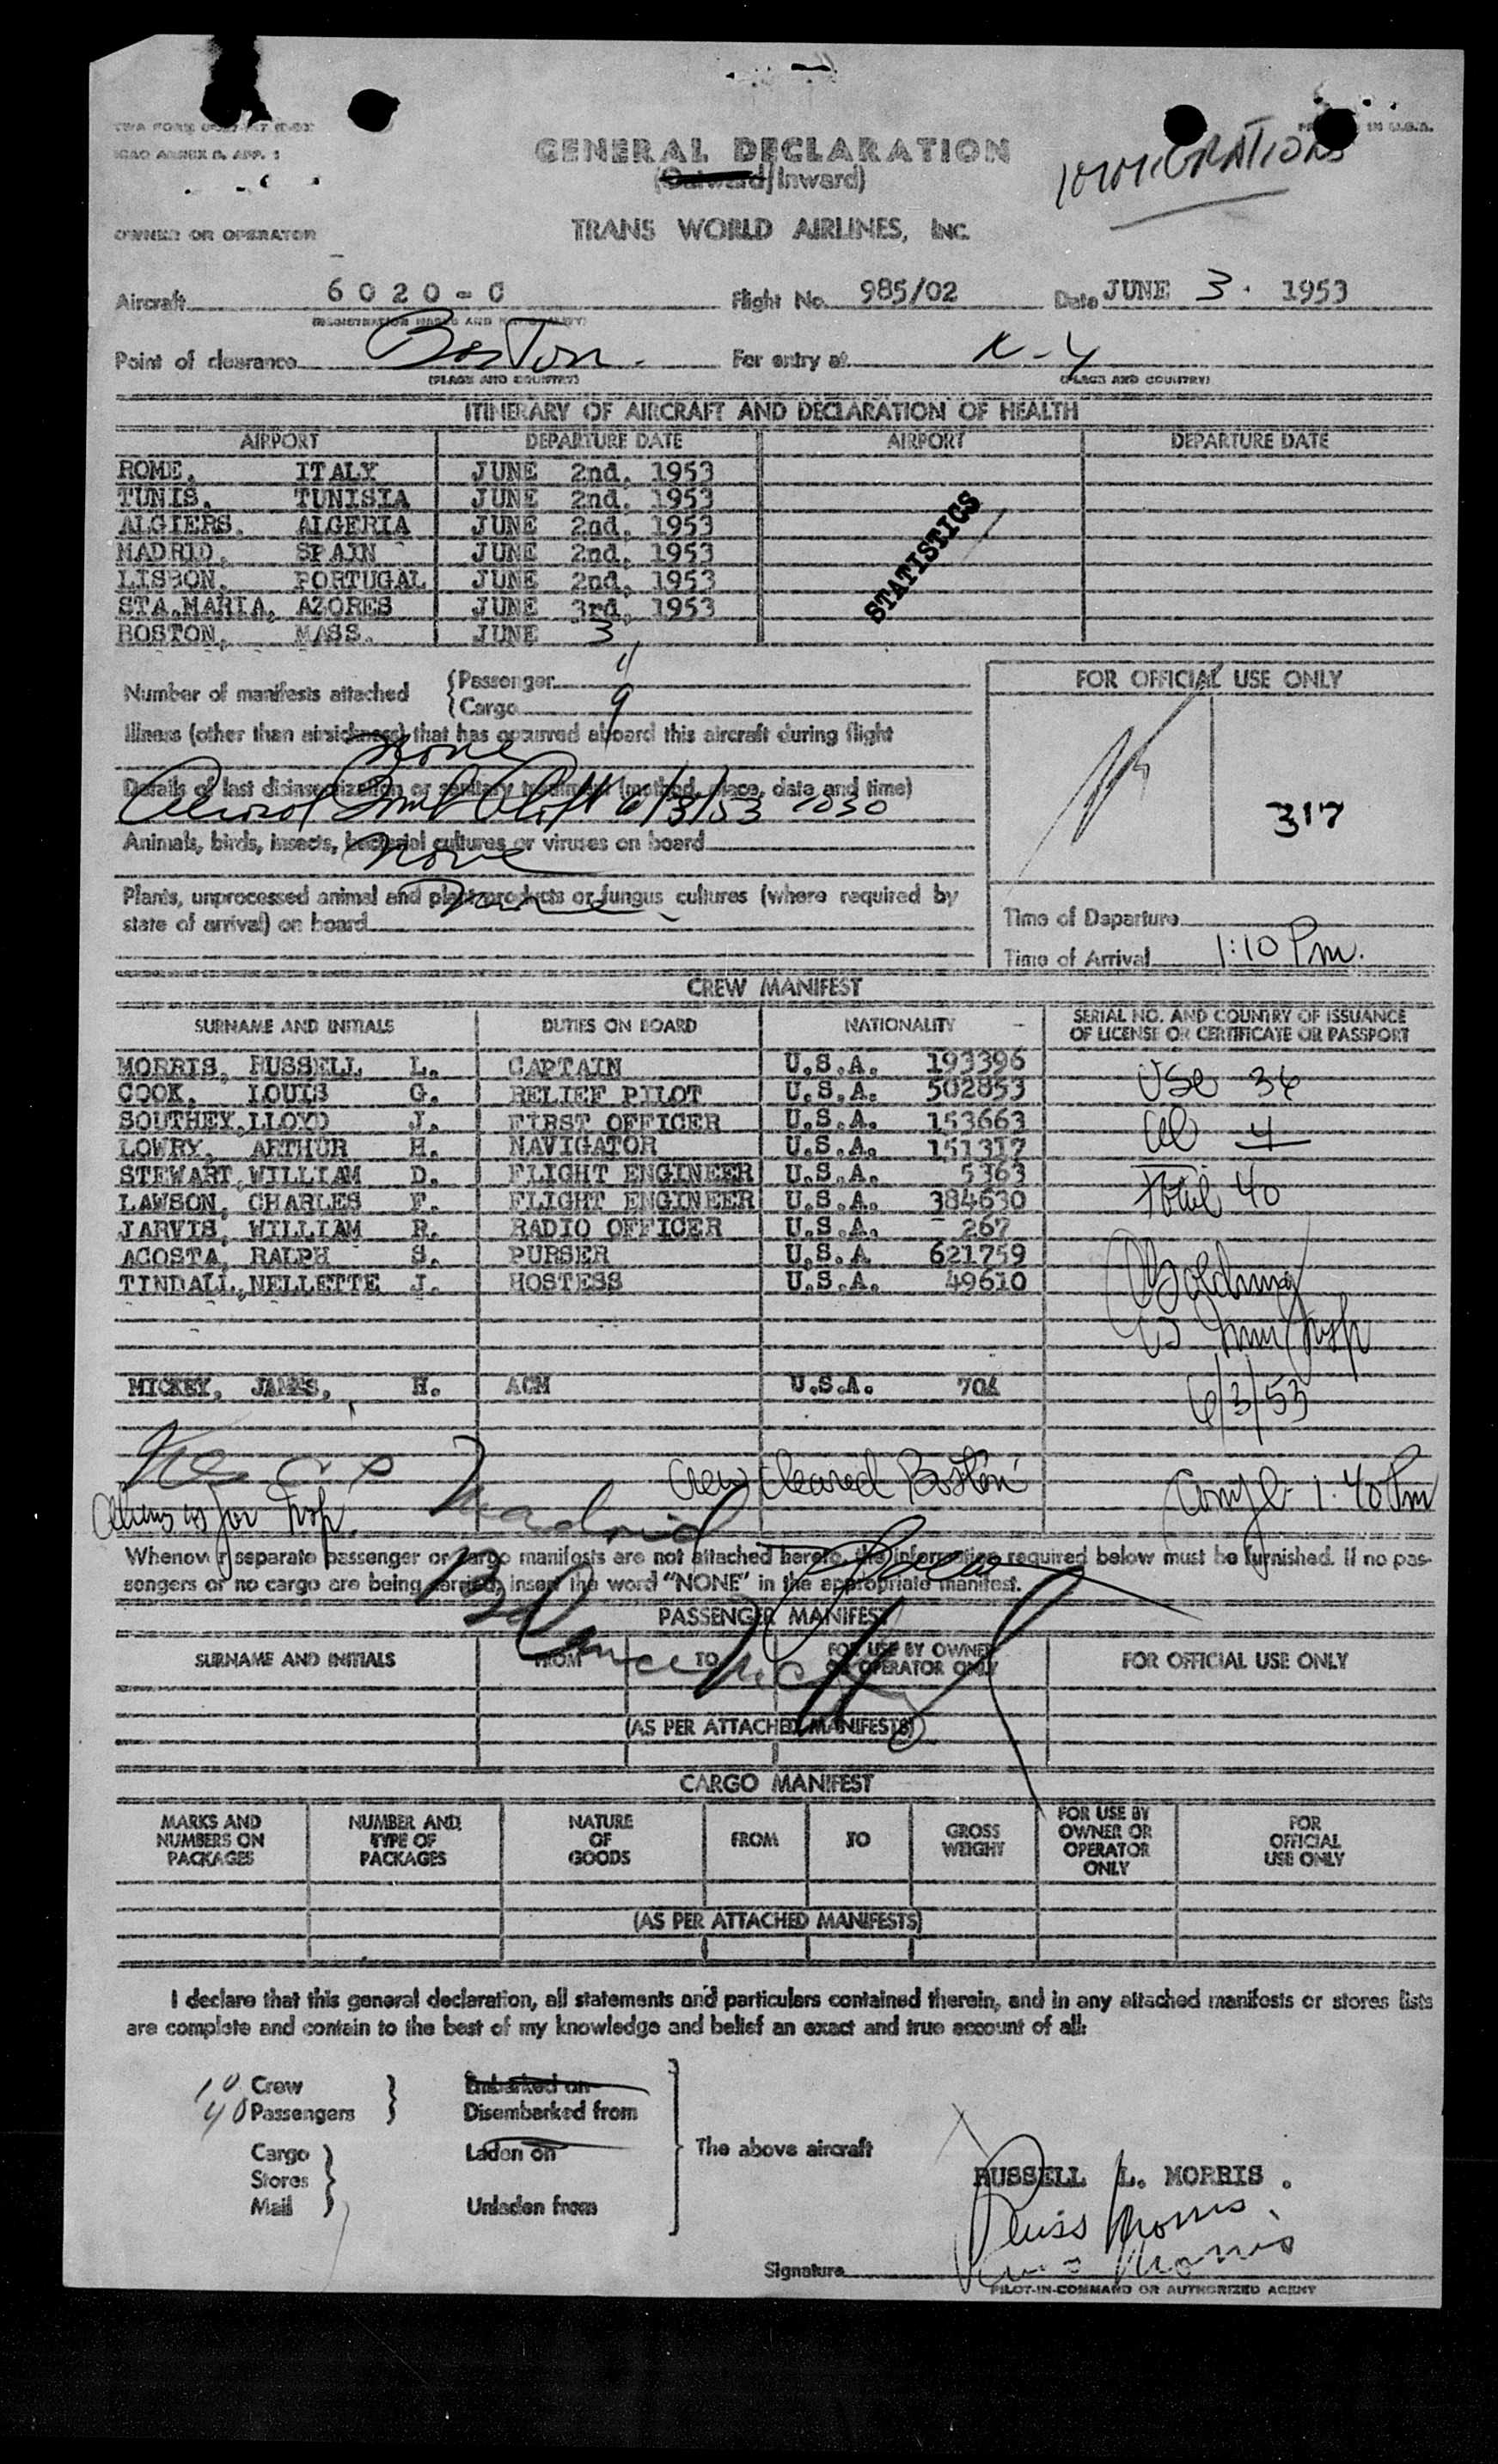 ICAO ANNEX 9, APP. 1
IN U.S.A.
GENERAL DECLARATION
(Outward/Inward)
IMMIGRATION
OWNER OR OPERATOR
TRANS WORLD AIRLINES, INC.
Aircraft 6020-C Flight No. 985/02 Date JUNE 3. 1953
(REGISTRATION MARKS AND NATIONALITY)
Point of clearance Boston. For entry at N-Y
(PLACE AND COUNTRY) (PLACE AND COUNTRY)
ITINERARY OF AIRCRAFT AND DECLARATION OF HEALTH
AIRPORT DEPARTURE DATE AIRPORT DEPARTURE DATE
ROME, ITALY JUNE 2nd, 1953
TUNIS, TUNISIA JUNE 2nd, 1953
ALGIERS, ALGERIA JUNE 2nd, 1953
MADRID, SPAIN JUNE 2nd, 1953
LISBON, PORTUGAL JUNE 2nd, 1953
STA.MARIA, AZORES JUNE 3rd, 1953
BOSTON, MASS. JUNE 3
STATISTICS
Number of manifests attached
Passenger 11
Cargo 9
FOR OFFICIAL USE ONLY
Illness (other than airsickness) that has occurred aboard this aircraft during flight
None
Details of last disinsectization or sanitary treatment (method, place, date and time)
Aerosol 6/3/53 1030
317
Animals, birds, insects, bacterial cultures or viruses on board
None
Plants, unprocessed animal and plant products or fungus cultures (where required by
state of arrival) on board None
Time of Departure
Time of Arrival 1:10 Pm.
CREW MANIFEST
SURNAME AND INITIALS DUTIES ON BOARD NATIONALITY SERIAL NO. AND COUNTRY OF ISSUANCE
OF LICENSE OR CERTIFICATE OR PASSPORT
MORRIS, RUSSELL L. CAPTAIN U.S.A. 193396
COOK, LOUIS G. RELIEF PILOT U.S.A. 502853
USC 36
SOUTHEY, LLOYD J. FIRST OFFICER U.S.A. 153663
LOWRY, ARTHUR H. NAVIGATOR U.S.A. 151317
4
STEWART, WILLIAM D. FLIGHT ENGINEER U.S.A. 5363
LAWSON, CHARLES F. FLIGHT ENGINEER U.S.A. 384630
Total 40
JARVIS, WILLIAM R. RADIO OFFICER U.S.A. 267
ACOSTA, RALPH S. PURSER U.S.A 621759
TINDALL, NELLETTE J. HOSTESS U.S.A. 49610
US Imm Insp
MICKEY, JAMES, H. ACM U.S.A. 704
6/3/53
Crew cleared Boston
Compl 1:40 Pm
Aliens is for Insp.
Madrid
Whenever separate passenger or cargo manifests are not attached hereto, the information required below must be furnished. If no pas-
sengers or no cargo are being carried, insert the word "NONE" in the appropriate manifest.
Balance
PASSENGER MANIFEST
SURNAME AND INITIALS FROM TO FOR USE BY OWNER
OR OPERATOR ONLY FOR OFFICIAL USE ONLY
(AS PER ATTACHED MANIFESTS)
CARGO MANIFEST
MARKS AND
NUMBERS ON
PACKAGES NUMBER AND
TYPE OF
PACKAGES NATURE
OF
GOODS FROM TO GROSS
WEIGHT FOR USE BY
OWNER OR
OPERATOR
ONLY FOR
OFFICIAL
USE ONLY
(AS PER ATTACHED MANIFESTS)
I declare that this general declaration, all statements and particulars contained therein, and in any attached manifests or stores lists
are complete and contain to the best of my knowledge and belief an exact and true account of all:
10 Crew Embarked on
40 Passengers Disembarked from
Cargo Laden on The above aircraft
Stores
RUSSELL L. MORRIS.
Mail Unladen from
Russ Morris
Russ Morris
Signature
PILOT-IN-COMMAND OR AUTHORIZED AGENT